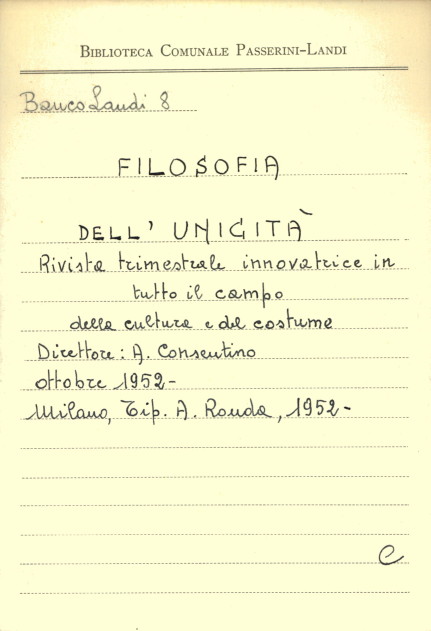 BIBLIOTECA COMUNALE PASSERINI-LANDI
Banco Landi 8
FILOSOFIA
DELL' UNICITÀ
Rivista trimestrale innovatrice in
tutto il campo
della cultura e del costume
Direttore: A. Consentino
ottobre 1952-
Milano, Tip. A. Ronda, 1952-
C